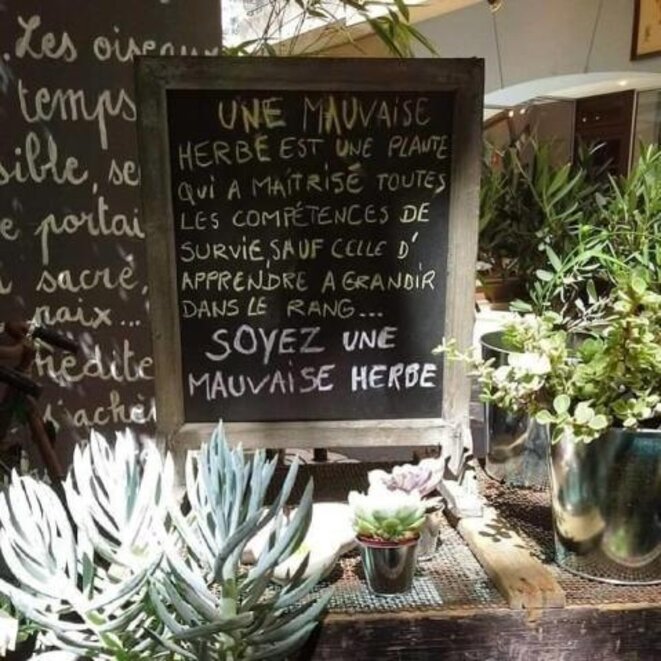 Les
temps
UNE MAUVAISE
HERBE EST UNE PLANTE
QUI A MAÎTRISÉ TOUTES
LES COMPÉTENCES DE
SURVIE, SAUF CELLE D'
APPRENDRE A GRANDIR
DANS LE RANG...
SOYEZ UNE
MAUVAISE HERBE
sacré,
paix...